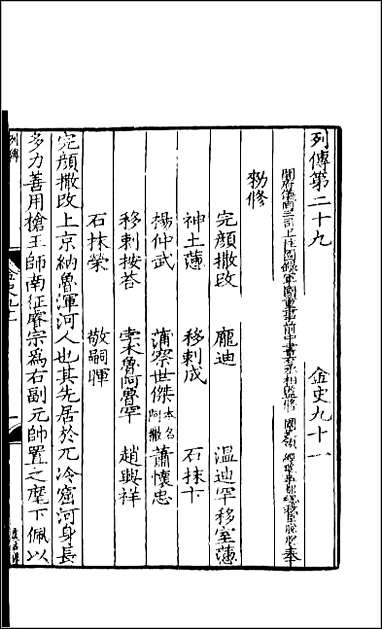 列傳第二十九　金史九十一
開府儀同三司上柱國錄軍國重事前中書右丞相監修國史領經筵事都總裁臣脫脫奉
勑修
完顏撒改　龐迪　溫迪罕移室懣
神土懣　移剌成　石抹卞
楊仲武　蒲察世傑本名阿撒　蕭懷忠
移剌按荅　孛术魯阿魯罕　趙興祥
石抹榮　敬嗣暉
完顏撒改上京納魯渾河人也其先居於兀冷窟河身長
多力善用槍王師南征睿宗為右副元帥置之麾下佩以
列傳
金史九十一